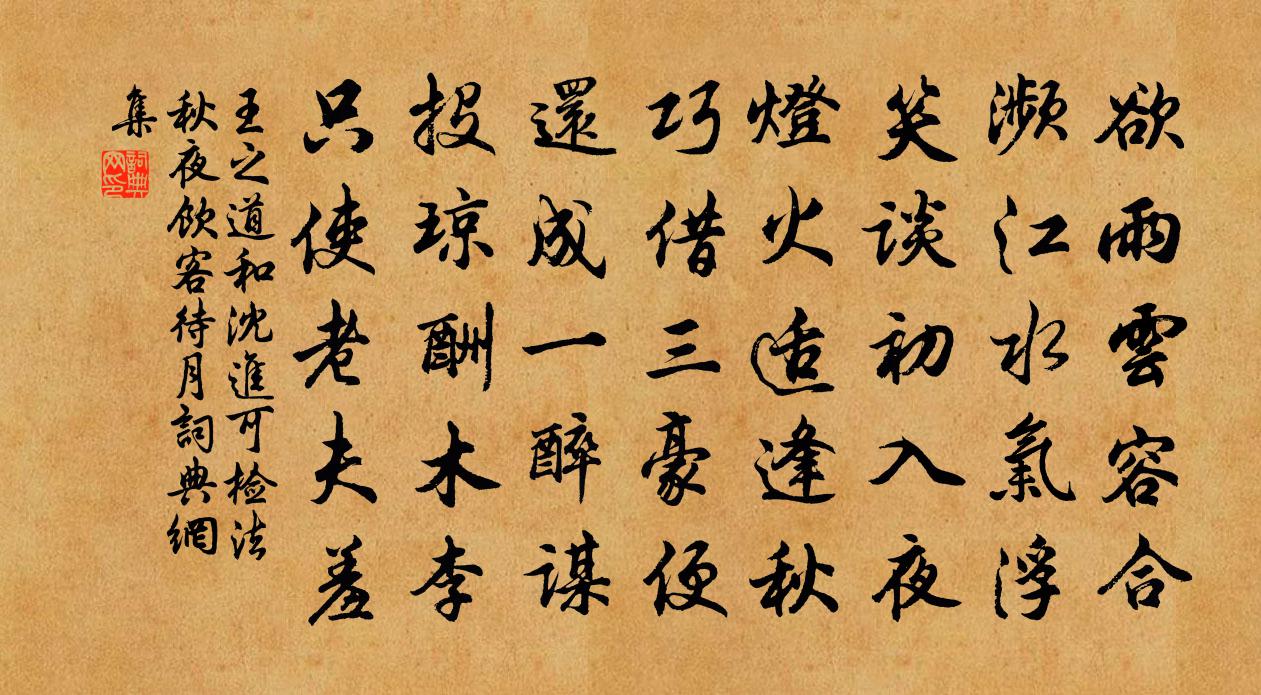 欲雨雲容合
瀕江水氣浮
笑談初入夜
燈火适逢秋
巧借三豪便
還成一醉謀
投瓊酬木李
只使老夫羞
王之道和沈進可檢法
秋夜飲客待月詞典網
集
詞典
网印